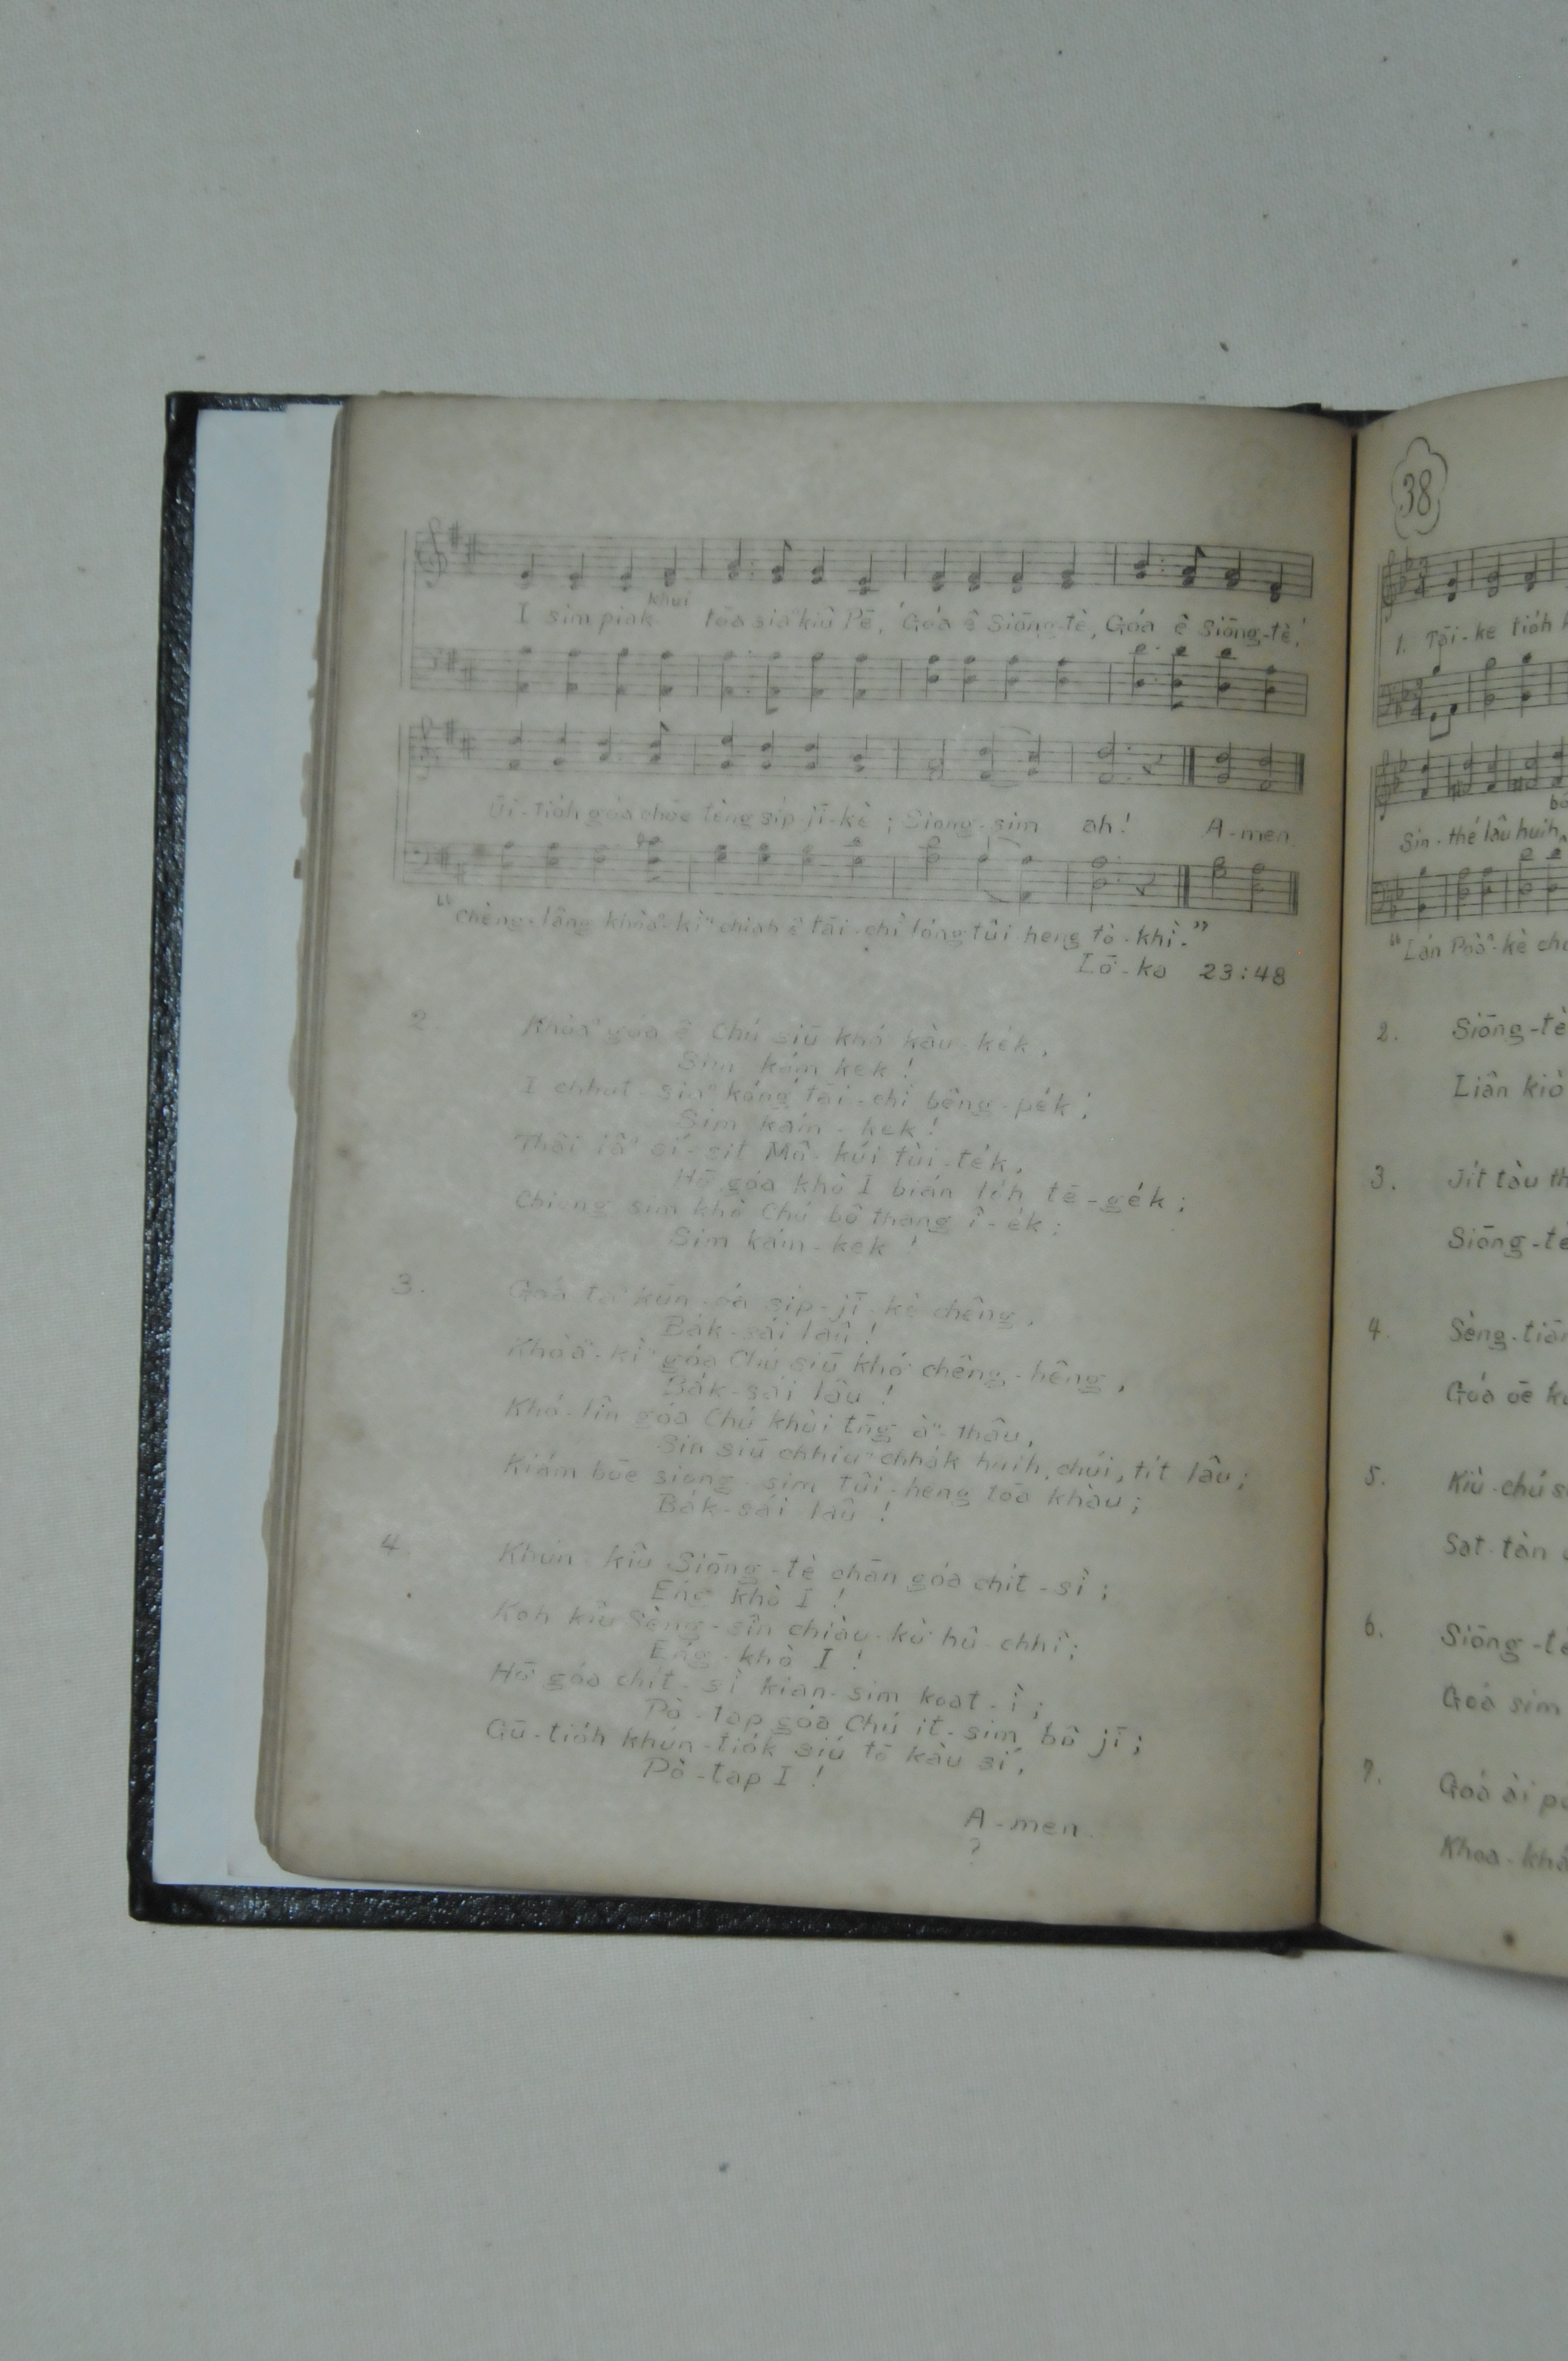 khui
I sim piak tōa siaⁿ kiû Pē, Góa ê Siōng-tè, Góa ê Siōng-tè!
Ūi-tio̍h góa chōe tèng si̍p-jī-kè; Siong-sim ah! A-men.
"Chèng-lâng khòaⁿ-kìⁿ chiah ê tāi-chì lóng tûi heng tò-khì."
Lō͘-ka 23:48
2. Khòaⁿ góa ê Chú siū khó͘ kàu-ke̍k,
Sim kám-kek!
I chhut-siaⁿ kóng tāi-chì bêng-pe̍k;
Sim kám-kek!
sí-sit Mô͘-kúi tùi-te̍k,
Hō͘ góa khò I bián lo̍h tē-ge̍k;
Chiong sim khò Chú bô thang î-e̍k;
Sim kám-kek!
3. si̍p-jī-kè chêng,
Ba̍k-sái lâu!
Khòaⁿ-kìⁿ góa Chú siū khó͘ chêng-hêng,
Ba̍k-sái lâu!
Khó-lîn góa Chú khùi tn̄g àⁿ-thâu,
Sin siū chhiuⁿ chha̍k huih, chúi, ti̍t lâu;
Kiám bōe siong-sim tûi-heng tōa khàu;
Ba̍k-sái lâu!
4. Khún-kiû Siōng-tè chān góa chi̍t-sì;
Éng khò I!
Koh kiû Sèng-sîn chiàu-kò͘ hû-chhî;
Éng-khò I!
Hō͘ góa chi̍t-sì kian-sim koat-ì;
Pò-tap góa Chú it-sim bô jī;
Gū-tio̍h khún-tio̍k siú tō kàu sí,
Pò-tap I!
A-men.
?
38
1. Tāi-ke tio̍h
Sin-thé lâu huih,
"Lán
2. Siōng-tè
Liân kiò
3. Ji̍t tàu
Siōng-tè
4.
Góa ōe
5. Kiù-chú
Sat-tàn
6. Siōng-tè
Góa sim
7. Góa ài